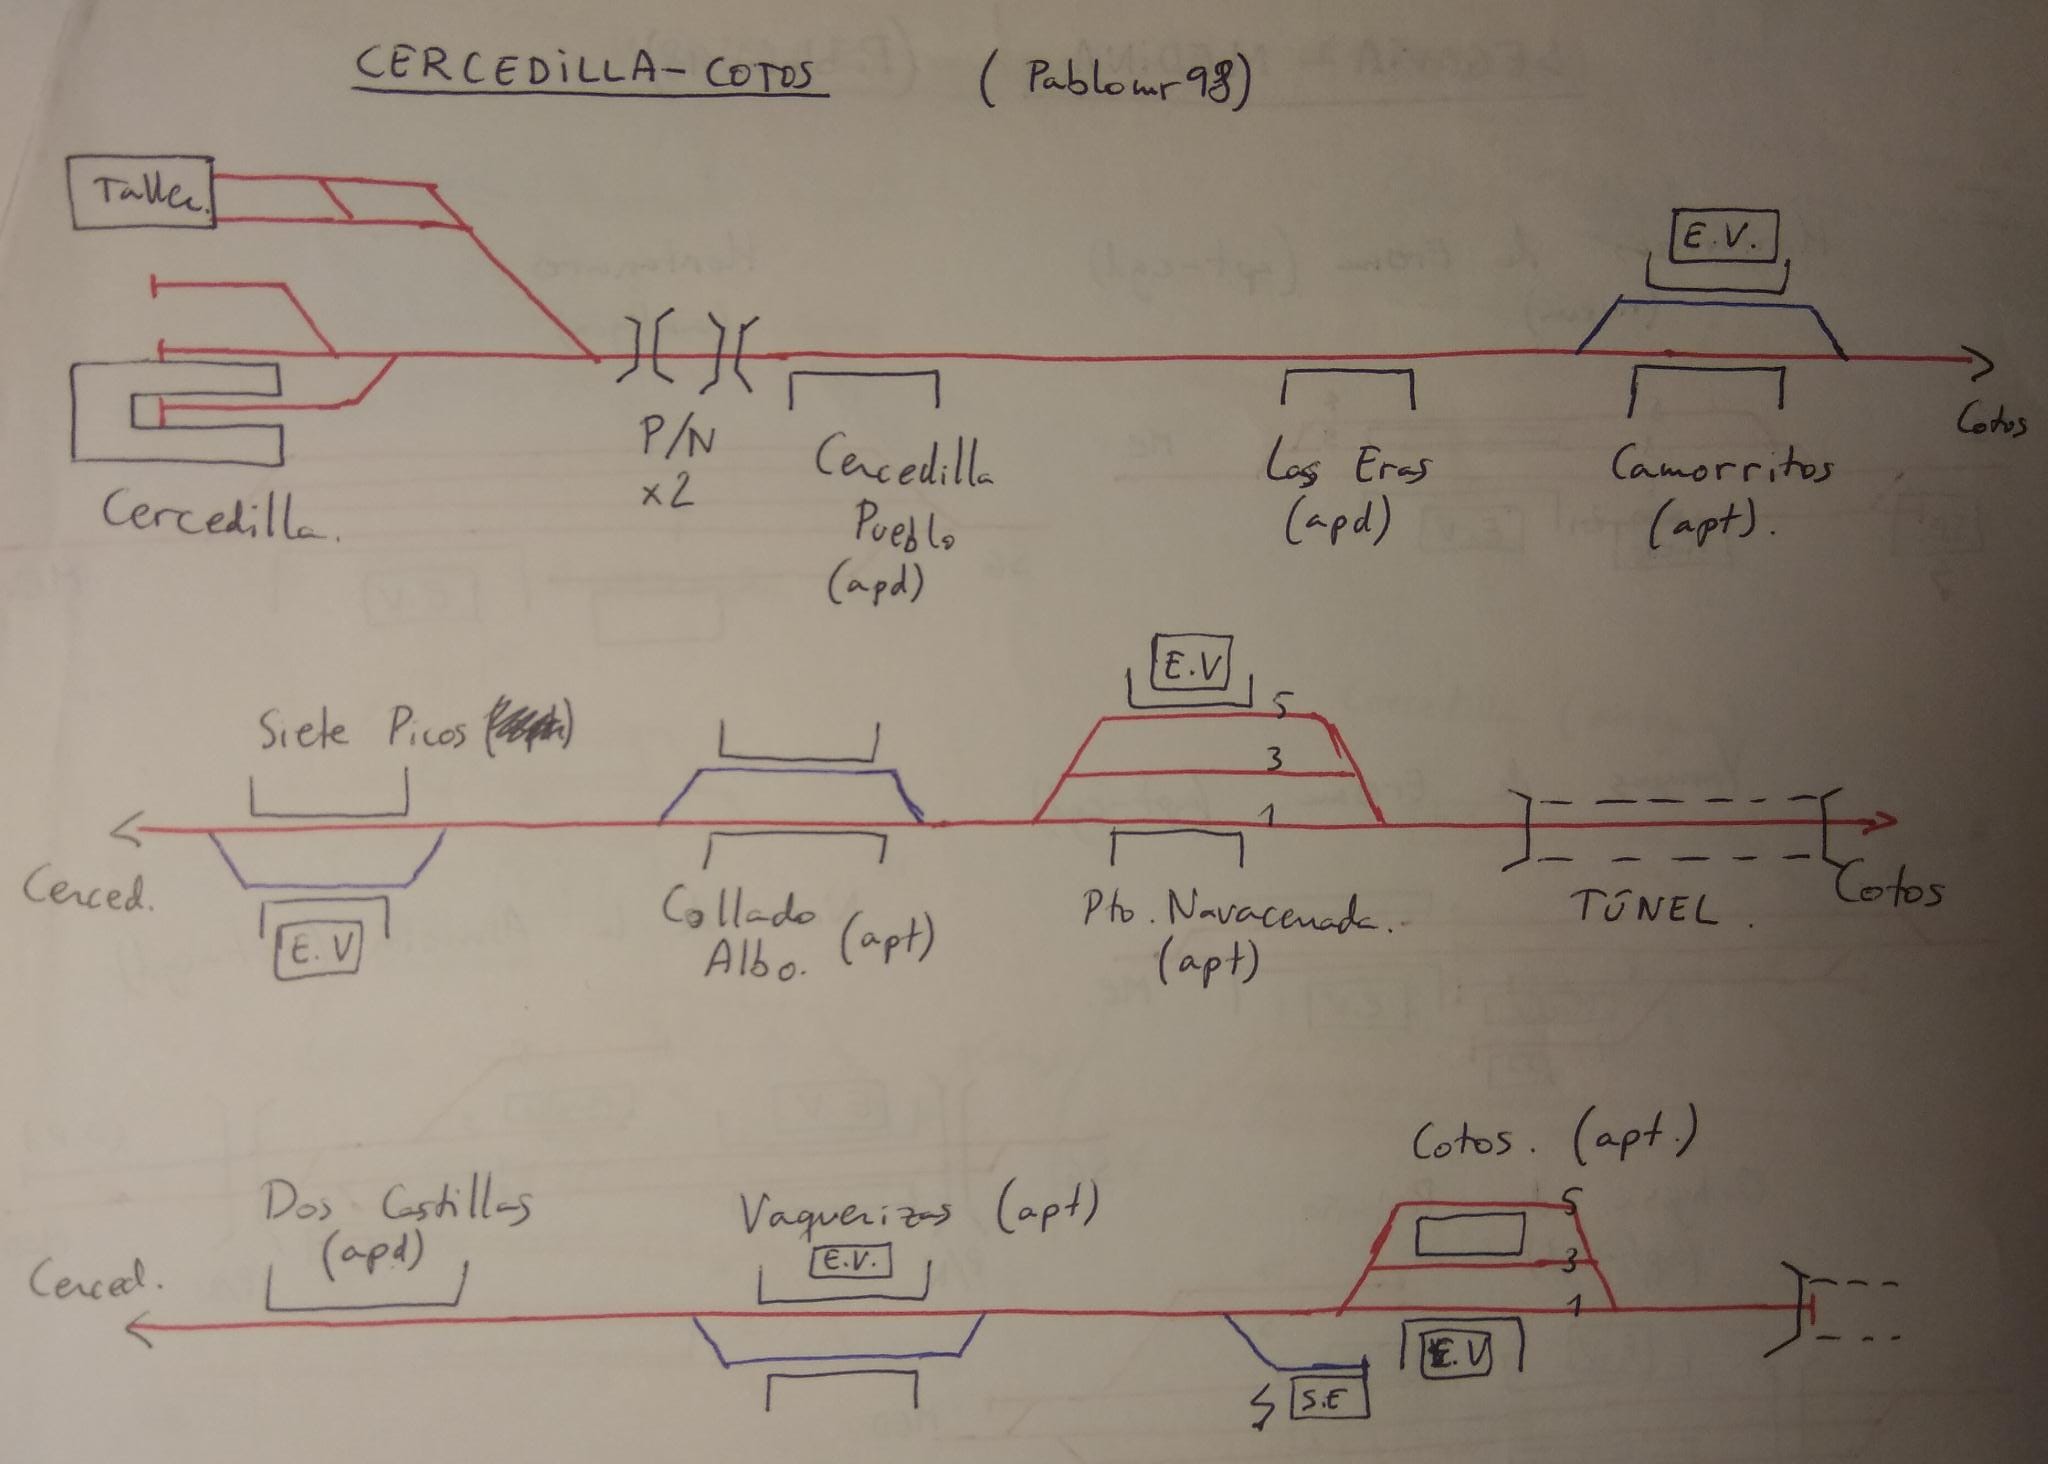 CERCEDiLLA-COTOS (Pablomr98)
Taller.
E.V.
Cotos
P/N
x2
Cercedilla
Pueblo
(apd)
Las Eras
(apd)
Camorritos
(apt).
Cercedilla.
E.V
5
3
1
Siete Picos
Cerced.
E.V
Collado
Albo. (apt)
Pto. Navacerrada.
(apt)
TÚNEL.
Cotos
Cotos. (apt.)
Dos Castillas
(apd)
Vaquerizas (apt)
E.V.
Cerced.
5
3
1
E.V
S.E